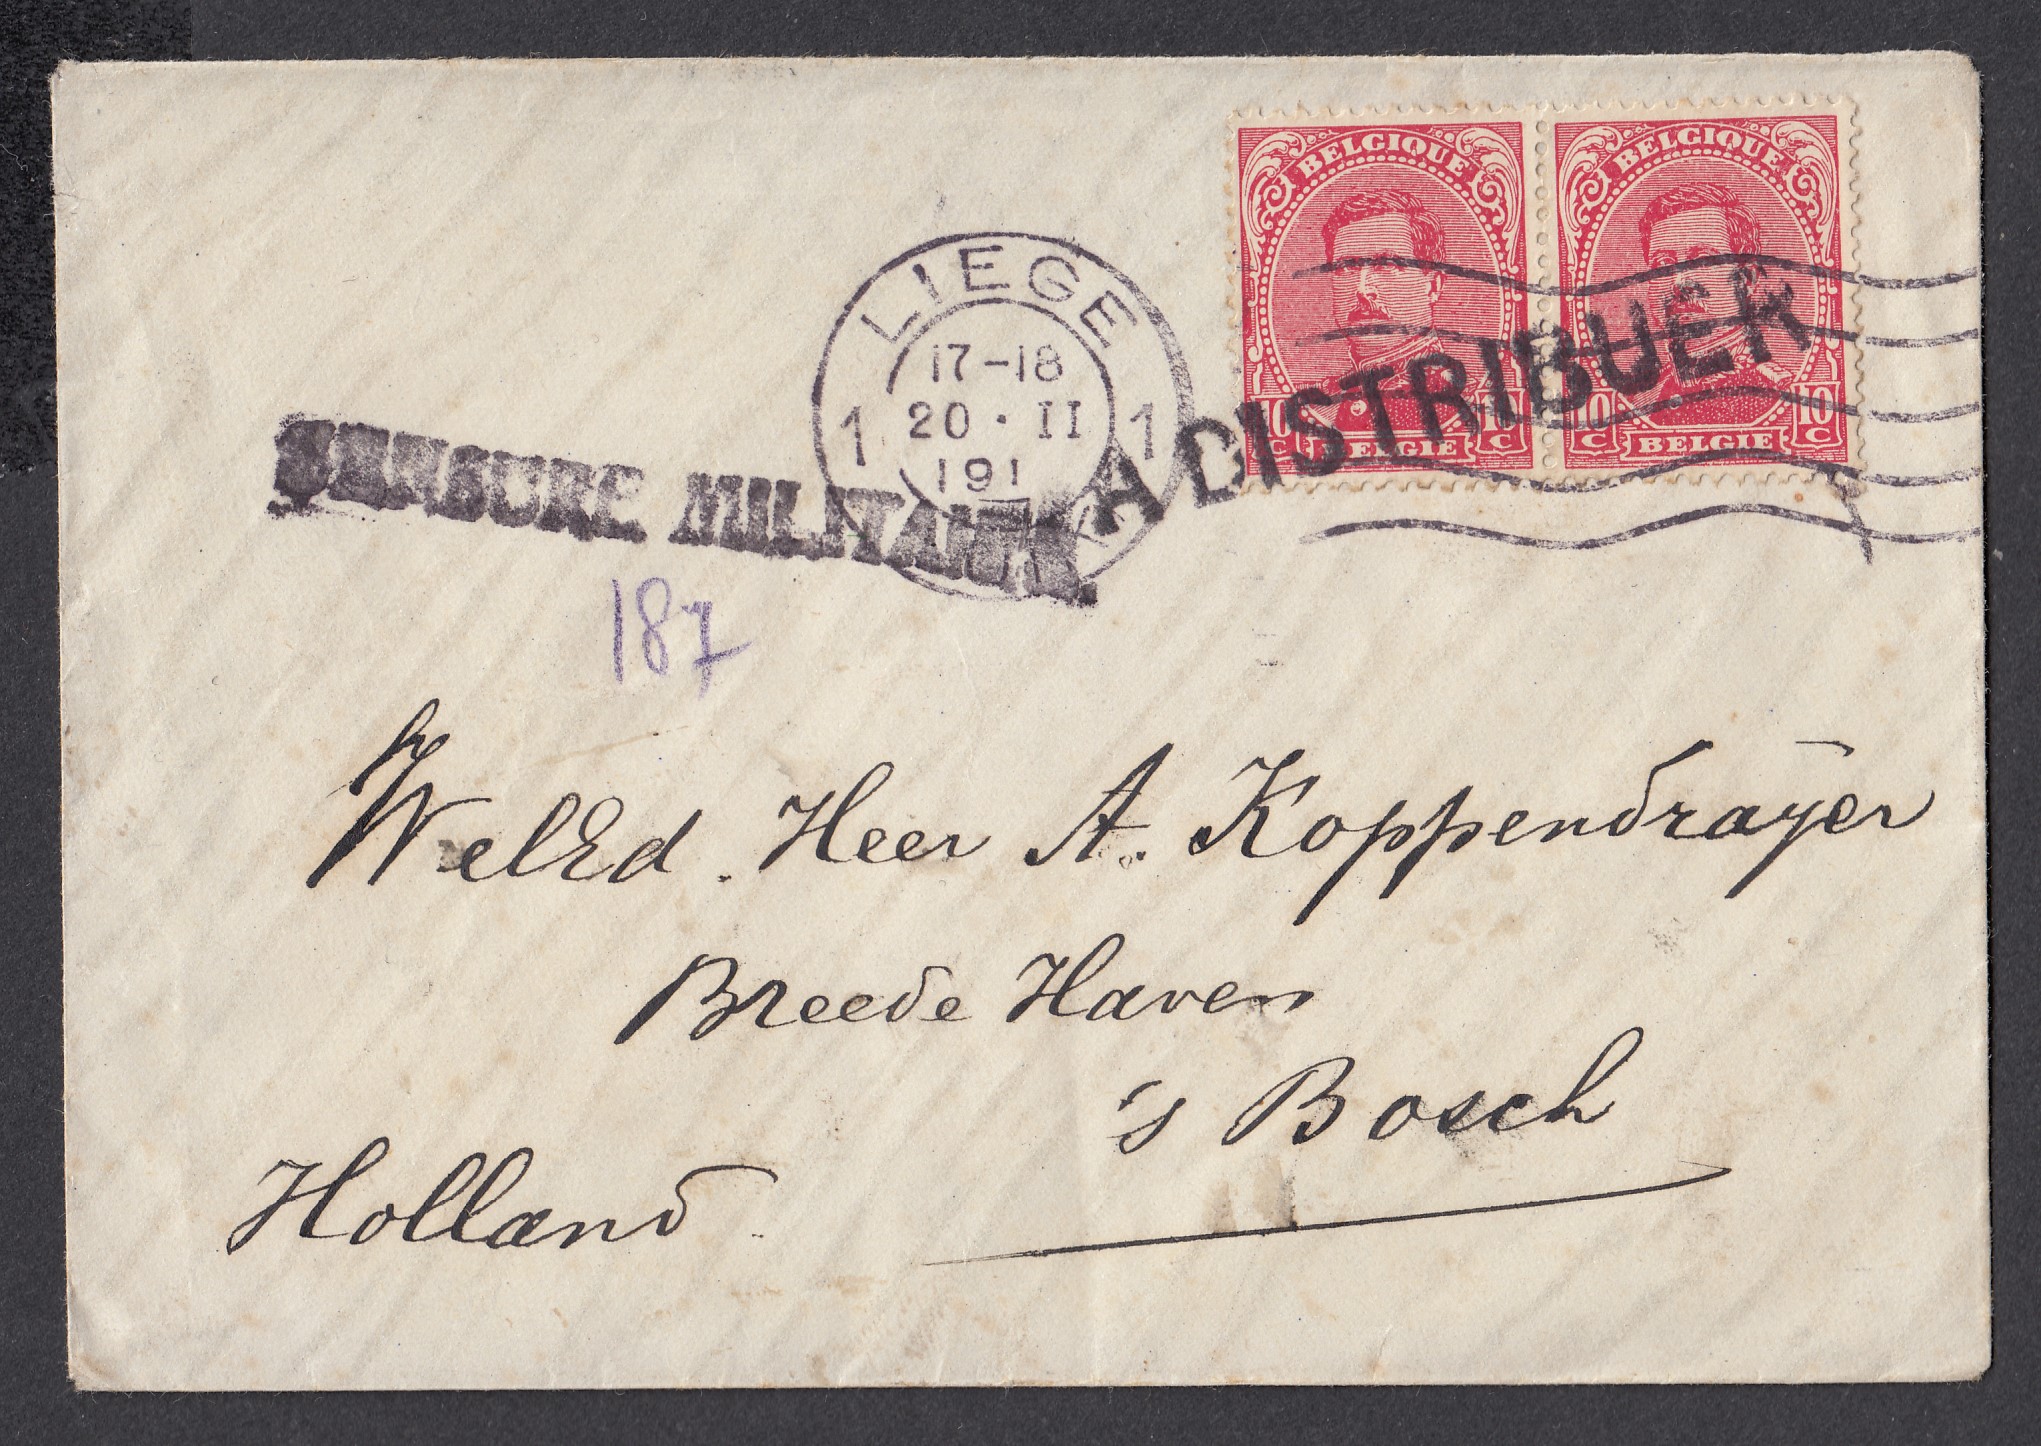 BELGIQUE BELGIQUE
10 C 10 C 10 C 10 C
BELGIE BELGIE
LIEGE
17-18
1 20 · II 1
191
A DISTRIBUER
CENSURE MILITAIRE
187
WelEd. Heer A. Koppendrayer
Breede Haven
's Bosch
Holland.